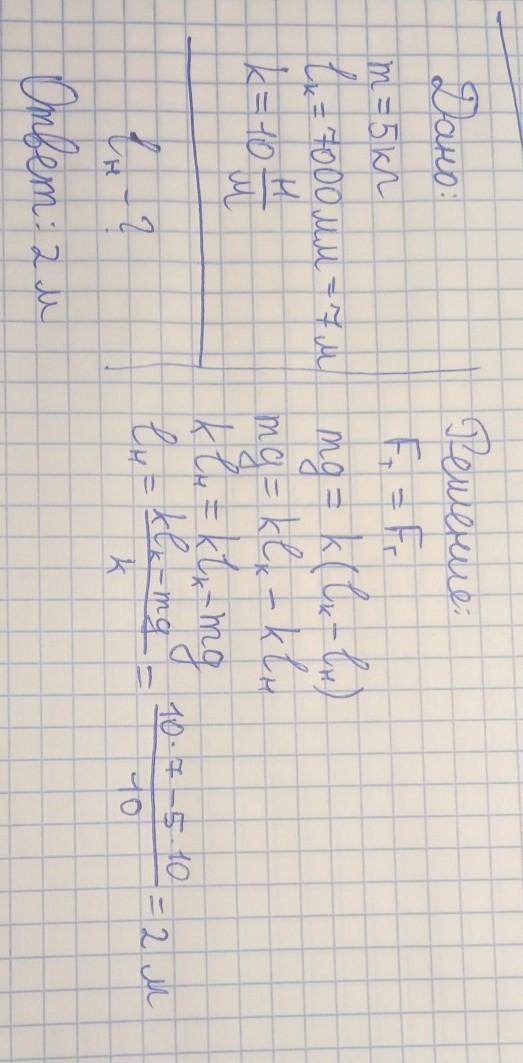 Дано:
m = 5 кг
lк = 7000 мм = 7 м
k = 10 Н/м
lн - ?
Решение:
Fт = Fг
mg = k(lк - lн)
mg = klк - klн
klн = klк - mg
lн = (klк - mg)/k = (10 · 7 - 5 · 10)/10 = 2 м
Ответ: 2 м